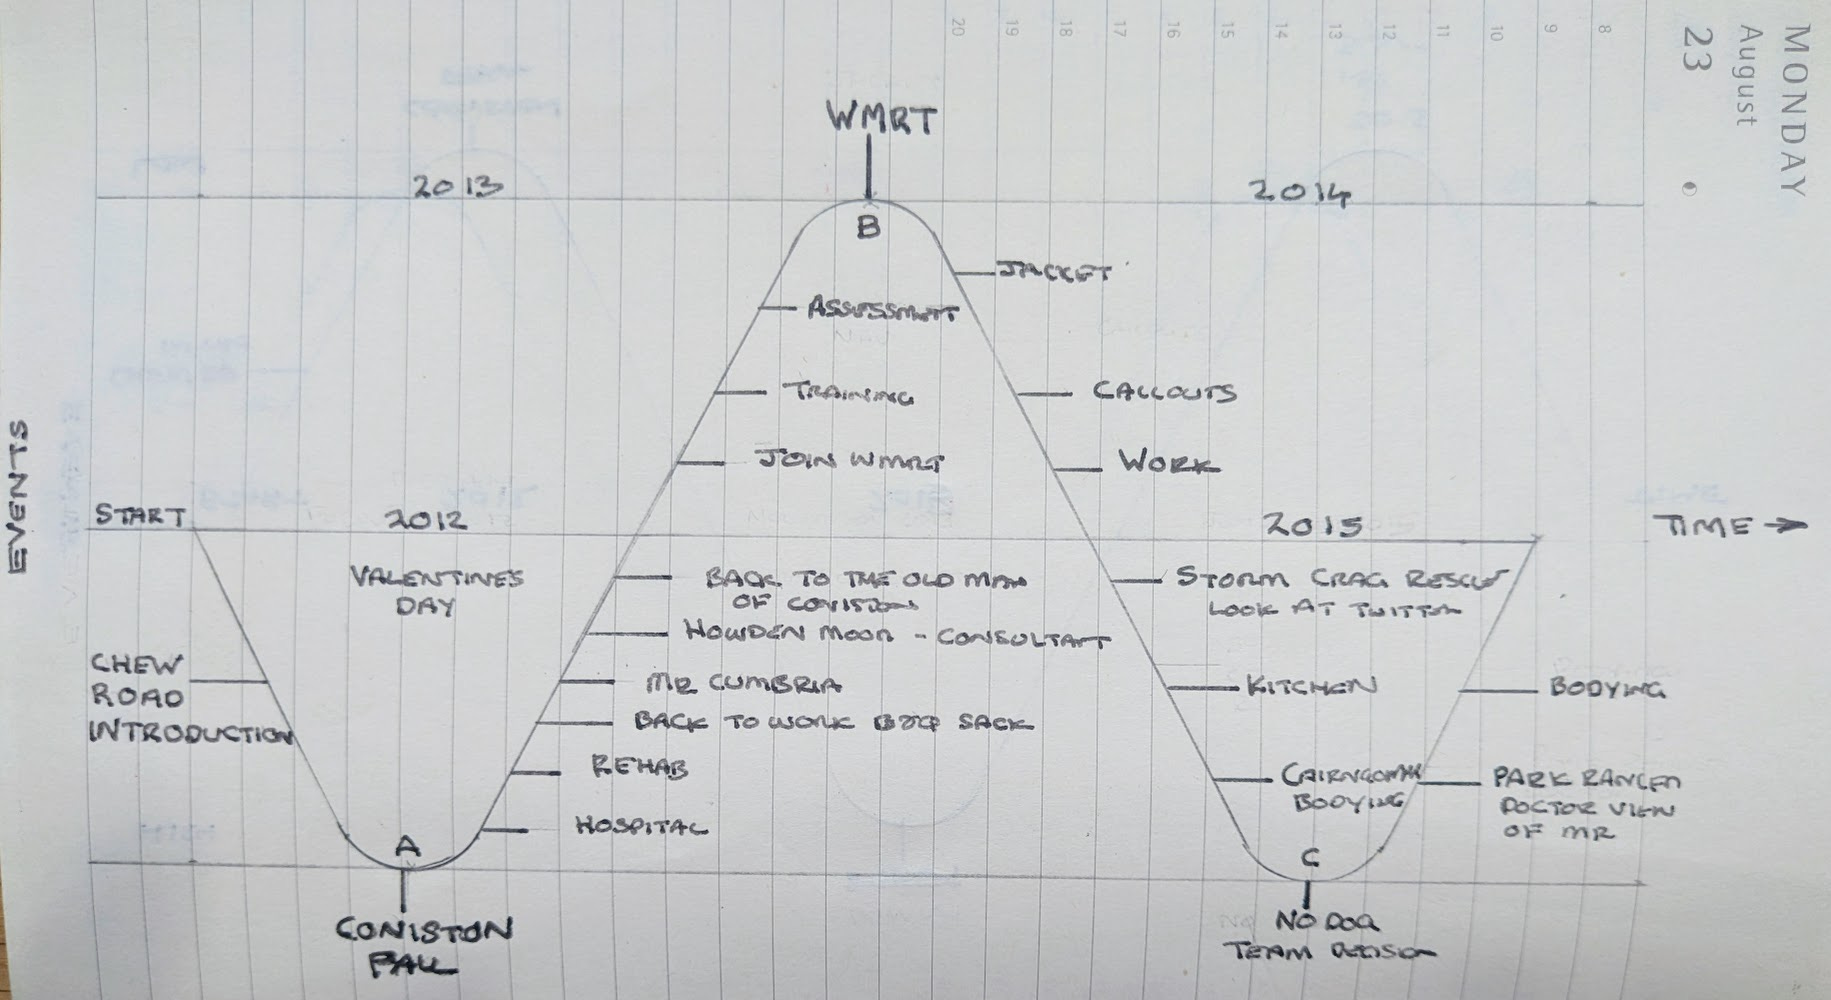 MONDAY
August
23
20 19 18 17 16 15 14 13 12 11 10 9 8
WMRT
2013
2014
B
JACKET
ASSESSMENT
TRAINING
CALLOUTS
JOIN WMRT
WORK
EVENTS
START
2012
2015
TIME →
VALENTINES
DAY
BACK TO THE OLD MAN
OF CONISTON
STORM CRAG RESCUE
LOOK AT TWITTER
HOWDEN MOOR - CONSULTANT
CHEW
ROAD
INTRODUCTION
MR CUMBRIA
KITCHEN
BODYING
BACK TO WORK SACK
REHAB
CAIRNGORM
BODYING
PARK RANGER
DOCTOR VIEW
OF MR
HOSPITAL
A
C
CONISTON
FALL
NO DOG
TEAM DECISION